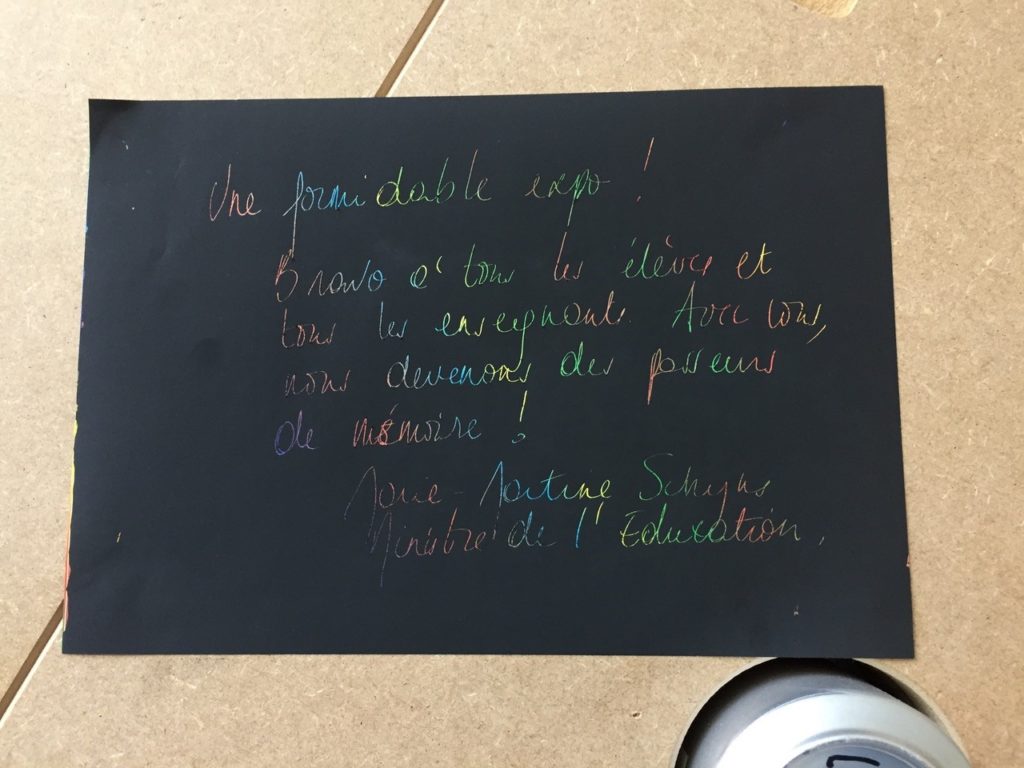 Une formidable expo !
Bravo à tous les élèves et
tous les enseignants. Avec vous,
nous devenons des passeurs
de mémoire !
Marie-Martine Schyns
Ministre de l'Education.